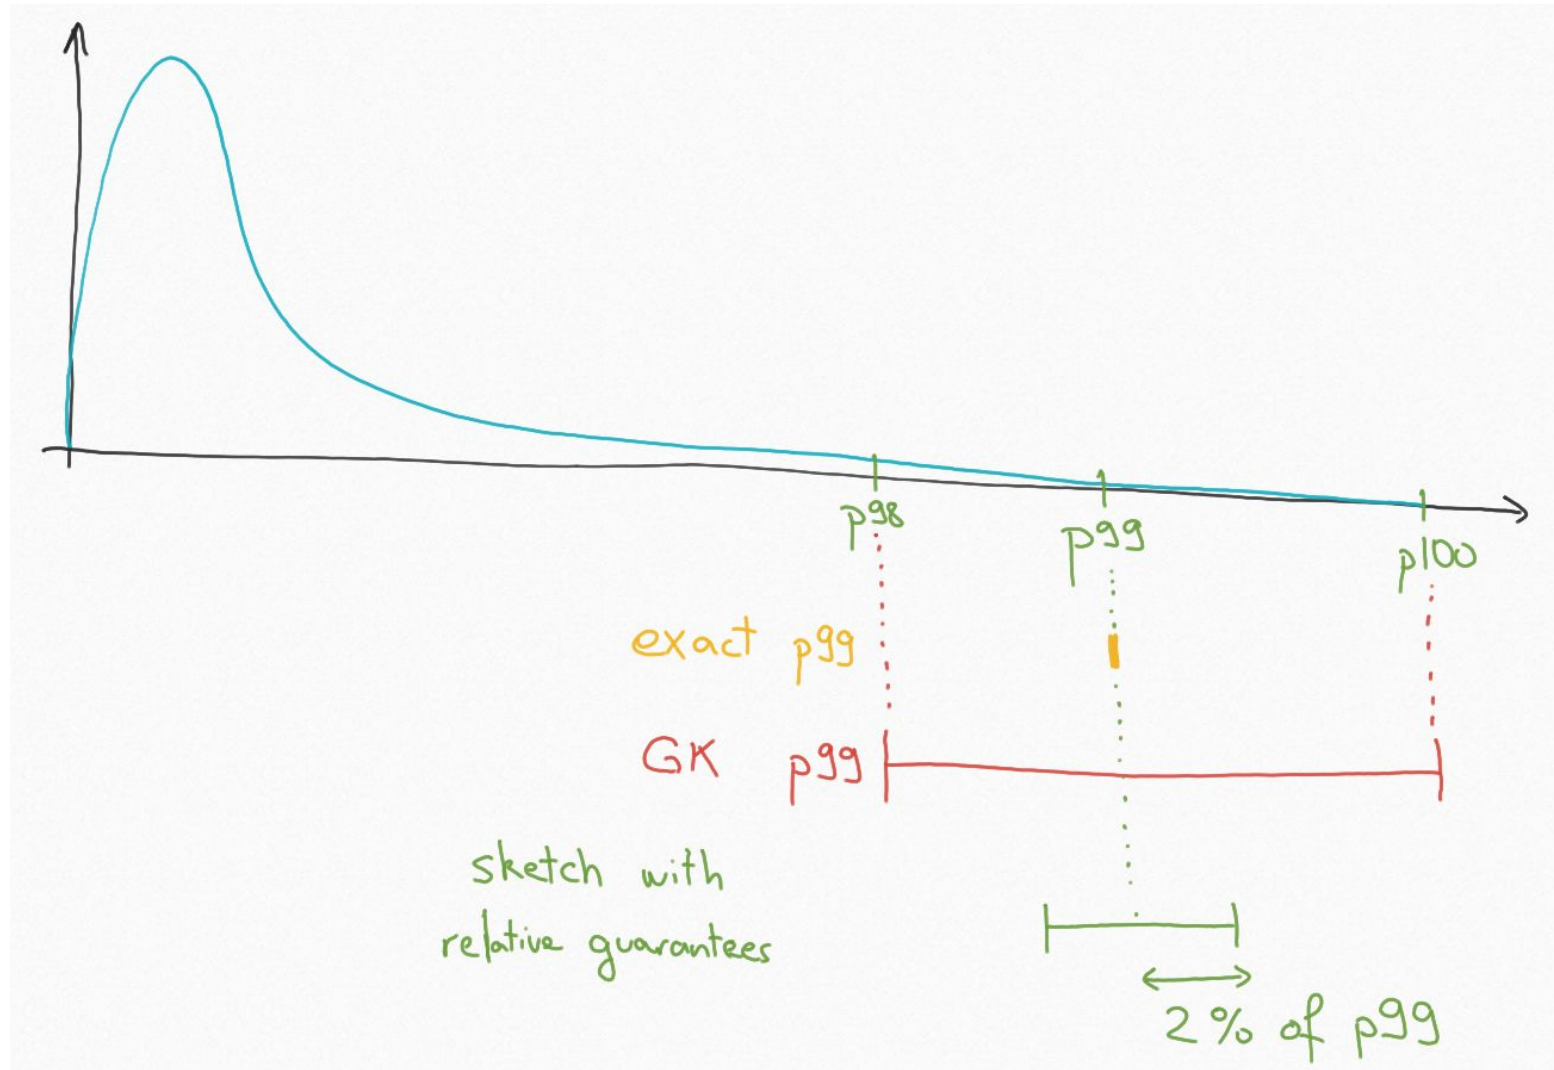 p98
p99
p100
exact p99
GK p99
sketch with
relative guarantees
2% of p99